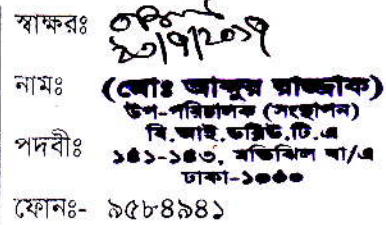 স্বাক্ষরঃ
২০/৭/২০১৭
নামঃ (মোঃ আব্দুর রাজ্জাক)
উপ-পরিচালক (সংস্থাপন)
পদবীঃ বি.আই.ডব্লিউ.টি.এ
১৪১-১৪৩, মতিঝিল বা/এ
ঢাকা-১০০০
ফোনঃ- ৯৫৮৪৯৪১